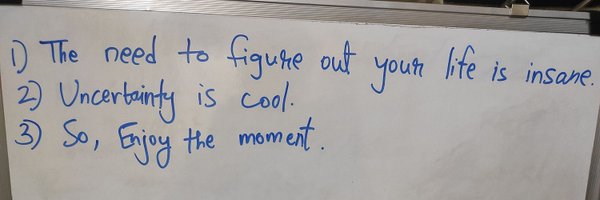 1) The need to figure out your life is insane.
2) Uncertainty is cool.
3) So, Enjoy the moment.